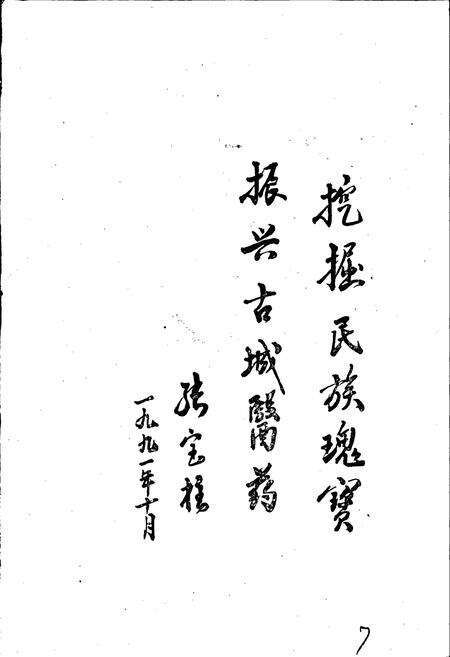 挖掘民族瑰寶
振兴古城醫药
张宝
一九九一年十月
7